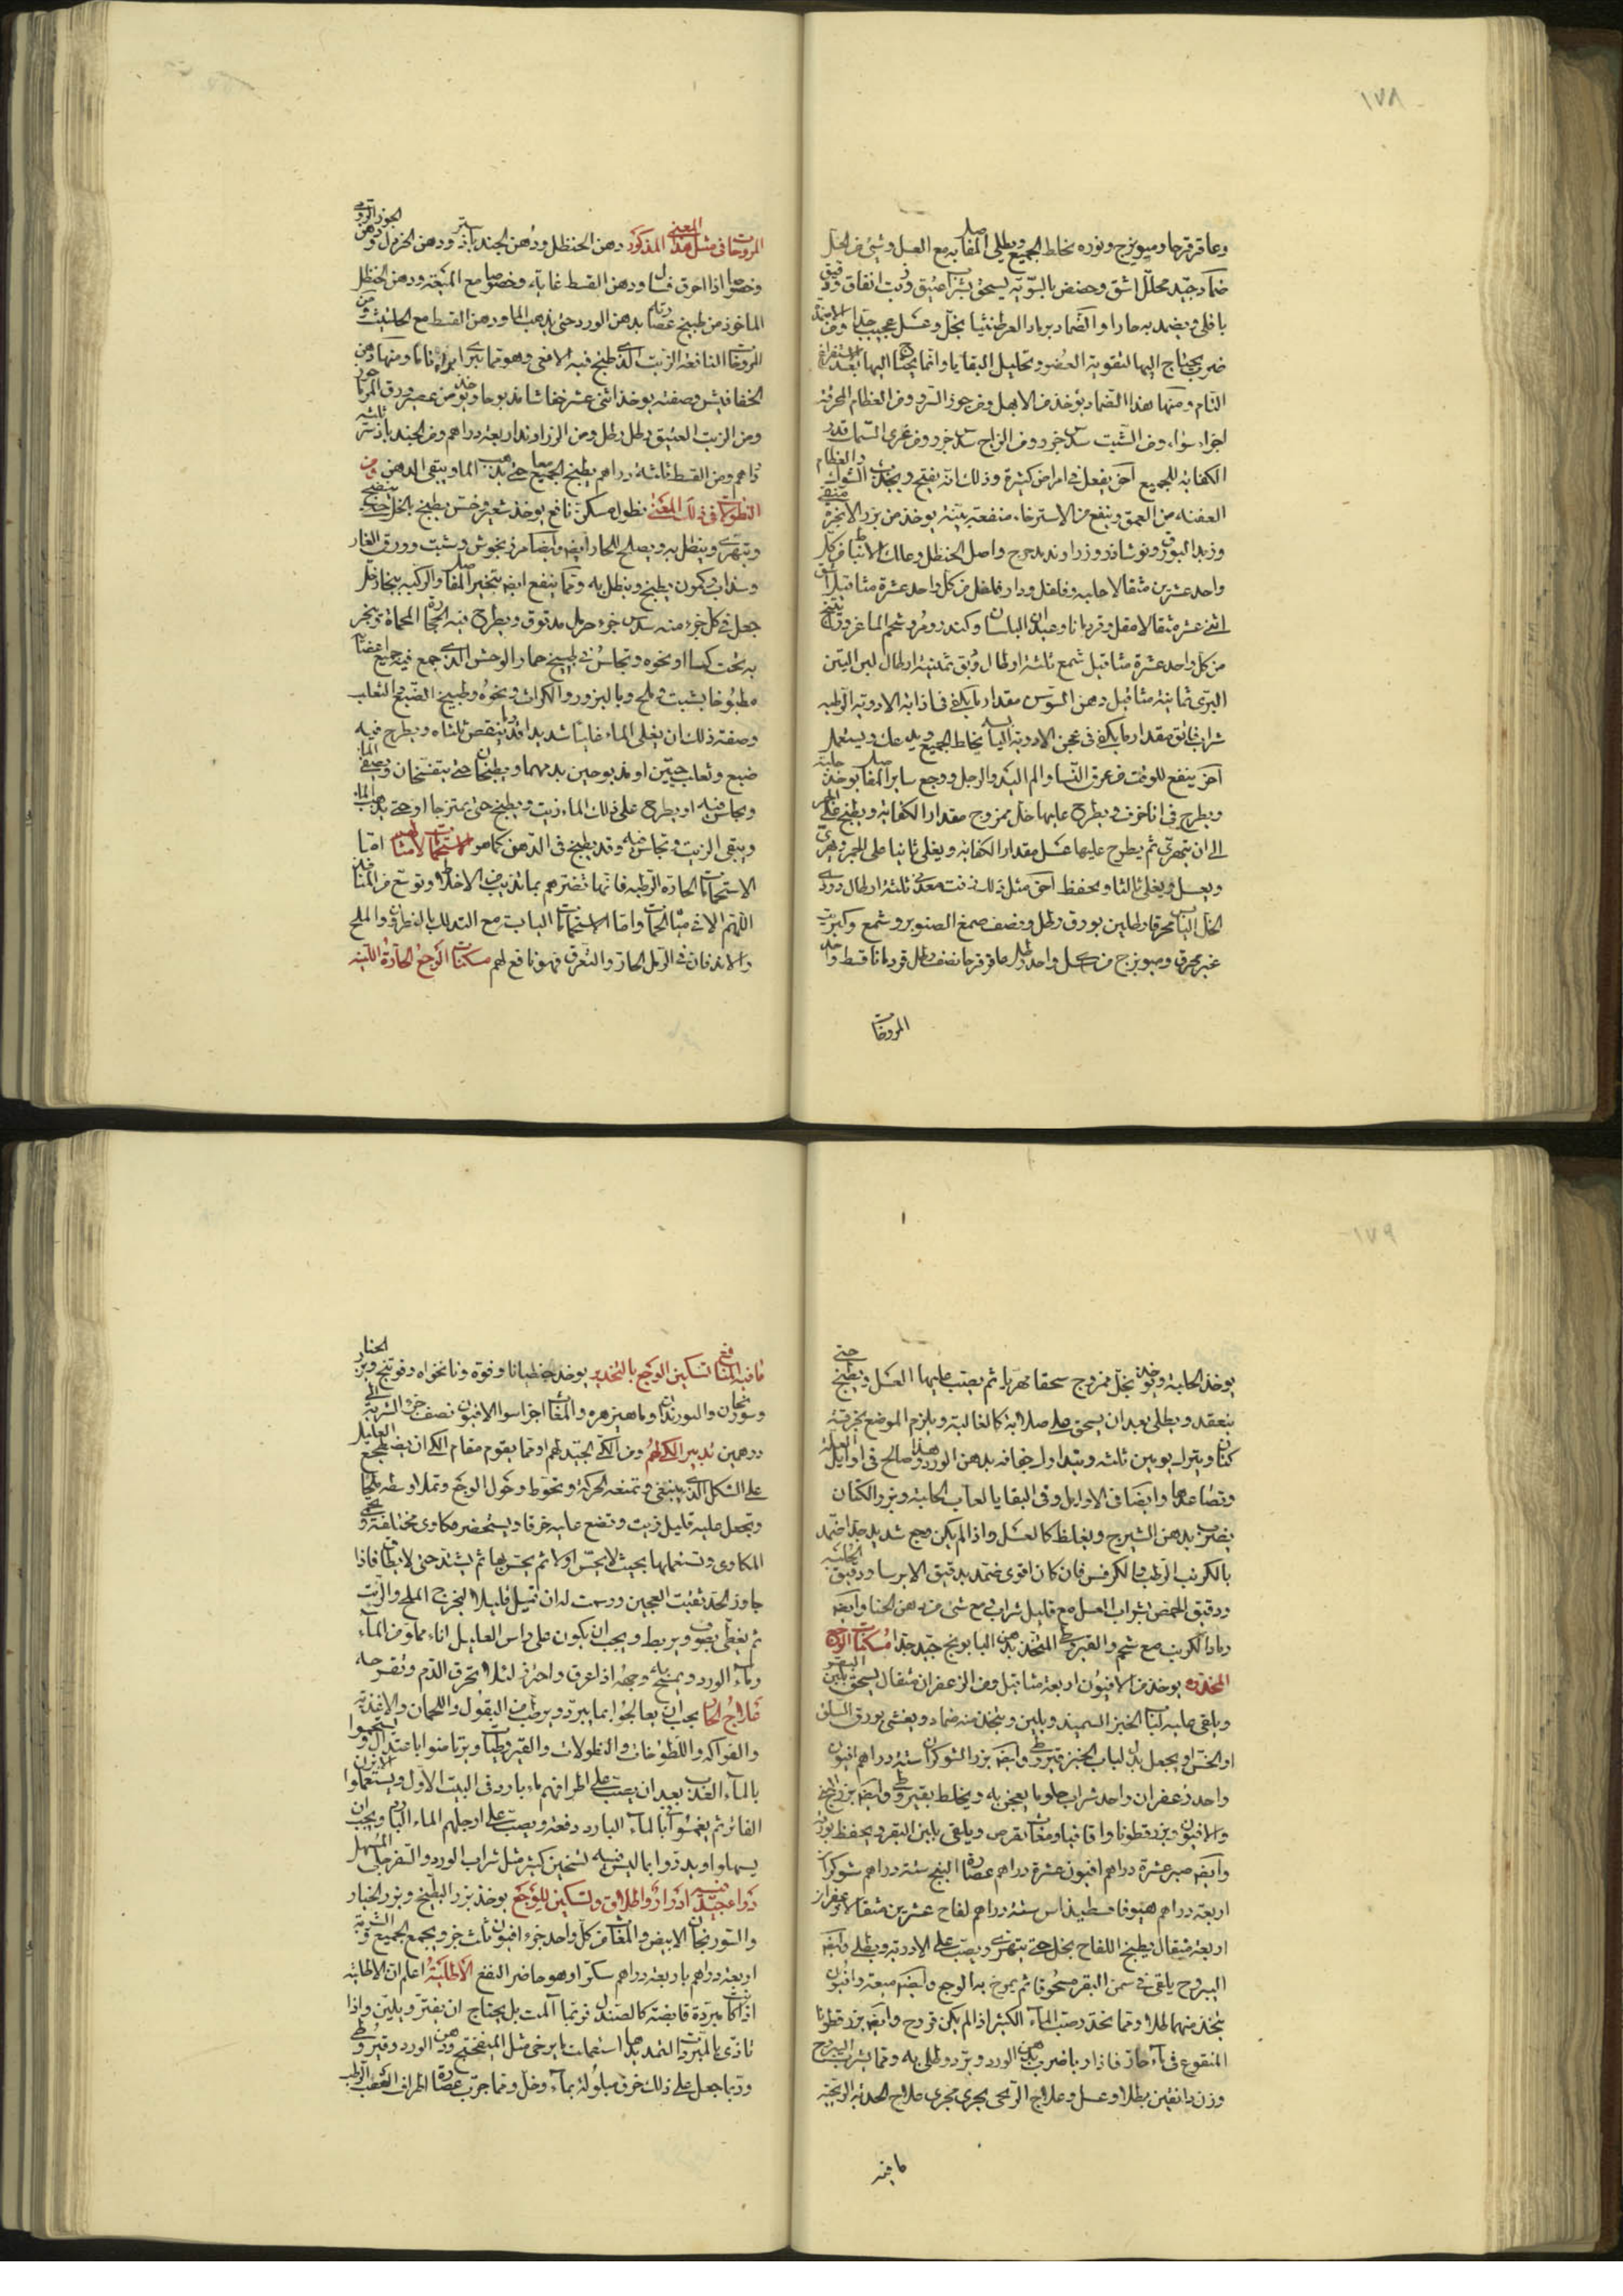 ١٧٨
وعاقرقرحا وميويزج ونوره يخلط الجميع ويطلى المفاصل به مع العسل وشئ من الخل
ضماد جيد محلل اشق وحضض بالسوية يسحق بشراب عتيق وزيت انفاق ودقيق
باقلى ويضمد به حارا والضماد برماد العرطنيثا بخل وعسل عجيب جدا ومن الاضمدة
ضرب يحتاج اليها لتقوية العضو وتحليل البقايا وانما يحتاج اليها بعد الاستفراغ
التام ومنها هذا الضماد يؤخذ من الابهل ومن جوز السرو ومن العظام المحرقة
اجزاء سواء ومن الشبت سدس جزو ومن الزاج سدس جزو ومن غرى السمك قدر
الكفاية للجميع اخر يفعل في امراض كثيرة وذلك انه يفتح ويجذب الشوك والعظام
العفنه من العمق وينفع من الاسترخاء منفعة بينة يوخذ من بزر الانجرة منقى
وزبد البورق ونوشاذر وزراوند مدحرج واصل الحنظل وعلك الانباط من كل
واحد عشرين مثقالا حلبه وفلفل ودار فلفل من كل واحد عشرة مثاقيل اشق
اثنى عشر مثقالا مقل وقردمانا وعيدان البلسان وكندر ومر وشحم الماعز وراتينج
من كل واحد عشرة مثاقيل شمع ثلثة ارطال دبق ثمنية ارطال لبن التين
البرى ثمانية مثاقيل دهن السوسن مقدار ما يكفى في اذابة الادوية الرطبه
شراب فائق مقدار ما يكفى في عجن الادوية اليابسه يخلط الجميع ويدعك ويستعمل
اخر ينفع للوقت من عرق النسا والم اليد والرجل ووجع ساير المفاصل يوخذ حلبة
ويطرح في انا خزف ويطرح عليها خل ممزوج مقدار الكفاية ويطبخ على الجمر
الى ان يتهرى ثم يطرح عليها عسل مقدار الكفاية ويغلى ثانيا على الجمر ويهرى
ويعسل ويغلى ثالثا ويحفظ اخر مثل ذلك زفت معدنى ثلثة ارطال دردى
الخل اليابس محرقا رطلين بورق رطل ونصف صمغ الصنوبر وشمع وكبريت
غير محرق وميويزج من كل واحد رطل عاقرقرحا نصف رطل قردمانا قسط واحد
المروخات
المروخات في مثل هذا المعنى المذكور دهن الحنظل ودهن الجندبادستر ودهن الخردل ودهن الجوز الرومى
وخصوصا اذا احرق قليلا ودهن القسط غاية وخصوصا مع الميعة ودهن الحنظل
الماخوذ من طبيخ عصارته بدهن الورد حتى يذهب الماء ودهن القسط مع الحلتيت ومن
المروخات النافعة الزيت الذى طبخ فيه الافعى وهو مما يبرئ ابراء تاما ومنها دهن
الخفافيش وصفته يوخذ اثنى عشر خفاشا مذبوحا ويوخذ من عصير ورق المرماخور
ومن الزيت العتيق رطل رطل ومن الزراوند اربعة دراهم ومن الجندبادستر ثلثة
دراهم ومن القسط ثلثة دراهم يطبخ الجميع معا حتى يذهب الماء ويبقى الدهن ومن
النطولات في ذلك المعنى نطول مسكن نافع يوخذ شعير وخس يطبخ بالخل حتى ينضج
ويتهرى وينطل به ويصلح للحار ايضا وايضا مرزنجوش وشبت وورق الغار
وسذاب وكمون يطبخ وينطل به ومما ينفع ايضا تبخير المفاصل والركبة ببخار خل
جعل في كل جزء منه سدس جزء حرمل مدقوق ويطرح فيه الحجارة المحماة ويبخر
به تحت كساء او نحوه ويجلس في طبيخ حمار الوحش الذى جمع فيه جميع اعضائه
مطبوخا بشبت وملح وبالبزور والكراث ونحوه وطبيخ الضبع والثعلب
وصفة ذلك ان يغلى الماء غليانا شديدا قدر ما ينقص ثلثاه ويطرح فيه
ضبع وثعلب حيين او مذبوحين بدمهما ويطبخان حتى يتفسخان ويصفى الماء
ويجلس فيه او يطرح على ذلك الماء زيت ويطبخ حتى يمتزجا او حتى يذهب الماء
ويبقى الزيت ويجلس فيه وقد يطبخ في الدهن كما هو الاستحمامات لامثالهم اما
الاستحمامات الحارة الرطبه فانها تضرهم بما تذيب من الاخلاط وتوسع من المنافذ
اللهم الا في مياه الحمات واما الاستحمامات اليابسة مع التدلك بالنطرون والملح
والاندفان في الرمل الحار والتعرق فهو نافع لهم مسكنات الوجع الحارة اللينه
١٧٩
يوخذ الحلبة ويوخذ بخل ممزوج سحقا مهريا ثم يصب عليها العسل ويطبخ حتى
ينعقد ويطلى بعد ان يسحق على صلابة كالغالية ويلزم الموضع بخرقة
كتان ويترك يومين ثلثه ويتداوى جفافه بدهن الورد وهذا صالح في اوايل العلة
وتصاعدها وايضا في الاوايل وفي البقايا لعاب الحلبة وبزر الكتان
يضرب بدهن الشيرج ويغلظ كالعسل واذا لم يكن وجع شديد جدا ضمد
بالكرنب الرطب والكرفس فان كان اقوى ضمد بدقيق الايرسا ودقيق الحلبة
ودقيق الحمص بشراب العسل مع قليل شراب مع شئ من دهن الحنا وايضا
رماد الكرنب مع شحم والقيروطى المتخذ بدهن البابونج جيد جدا مسكنات الوجع
المخدرة يوخذ من الافيون اربعة مثاقيل ومن الزعفران مثقال يسحق بلبن البقر
ويلقى عليه لباب الخبز السميد ويلين ويتخذ منه ضماد ويغشى بورق السلق
او الخس او يجعل بدل لباب الخبز قيروطى وايضا بزر الشوكران ستة دراهم افيون
واحد زعفران واحد شراب حلو ما يعجن به ويخلط بقيروطى وايضا بزر البنج
والافيون وبزرقطونا واقاقيا ومغاث يقرص ويلقى بلبن البقر ويحفظ
وايضا صبر عشرة دراهم افيون عشرة دراهم عصارة البنج ستة دراهم شوكران
اربعة دراهم هيوفاقسطيذاس ستة دراهم لفاح عشرين مثقالا زعفران
اربعة مثقال يطبخ اللفاح بخل حتى يتهرى ويصب على الادوية ويطلى وايضا
اليبروح يلقى في سمن البقر مسحوقا ثم يمرخ به الوجع وايضا ميعة وافيون
يتخذ منهما طلاء ومما يخدر صب الماء الكثير اذا لم يكن قروح وايضا بزر قطونا
المنقوع في ماء حار فاذا ربا ضرب بدهن الورد وبرد وطلى به ومما يشرب اليبروح
وزن دانقين بطلا وعسل وعلاج الريحى يجرى مجرى علاج الحدبة الريحية
ما فيه
ما فيه المنافع تسكين الوجع بالتخدير يوخذ جنطيانا وفوة ونانخواه وفوتنج وبزر الخيار
وسورنجان والبوزيدان وماهيزهره والمغاث اجزا سوا الافيون نصف جزء الشربة الى
درهمين تدبير الكى لهم ومن الكى الجيد لهم او مما يقوم مقام الكى ان يضطجع العليل
على الشكل الذى ينبغى وتمنعه الحركة وتحوط حول الوجع وتملا وسطه ملحا
وتجعل عليه قليل زيت وتضع عليه خرقا ويستحضر مكاوى مختلفة ويحمى
المكاوى وتستعملها بحيث لا يحس اولا ثم يحس بها ثم يشتد حتى لا يطاق فاذا
جاوز الحد نقبت العجين ورسمت له ان تميل قليلا ليخرج الملح والزيت
ثم يغطى بصوف ويربط ويجب ان يكون على راس العليل اناء مملو من الماء
وماء الورد ويمسح به وجهه اذا عرق واحترق لئلا يحرق الدم وتقرحه
علاج الحار يجب ان يعالجوا بما يبرد ويرطب من البقول واللحمان والاغذية
والفواكه واللطوخات والنطولات والقيروطيات ويرتاضوا باعتدال ويستحموا
بالماء العذب بعد ان يصب على اطرافهم ماء بارد في البيت الاول ويستعملوا الابزن
الفاتر ثم يغمسوا بالماء البارد دفعة ويصب على ارجلهم الماء البارد ويجب ان
يسهلوا ويدروا بما ليس فيه تسخين كثير مثل شراب الورد والسفرجلى المسهل
دواء جيد فيه ادرار واطلاق وتسكين للوجع يوخذ بزر البطيخ وبزر الخيار
والسورنجان الابيض والمغاث من كل واحد جزء افيون ثلث جزو ويجمع الجميع الشربة
اربعة دراهم باربعة دراهم سكر وهو حاضر النفع الاطلية اعلم ان الاطلية
اذا كانت مبردة قابضة كالصندل فربما آلمت بل يحتاج ان يفتر ويلين واذا
تاذى بالمبردات الشديدة استعملت ما يرخى مثل الميفختج ودهن الورد وقيروطى
وربما جعل على ذلك خرق مبلولة بماء وخل ومما جرب عصارة اطراف القصب الرطب